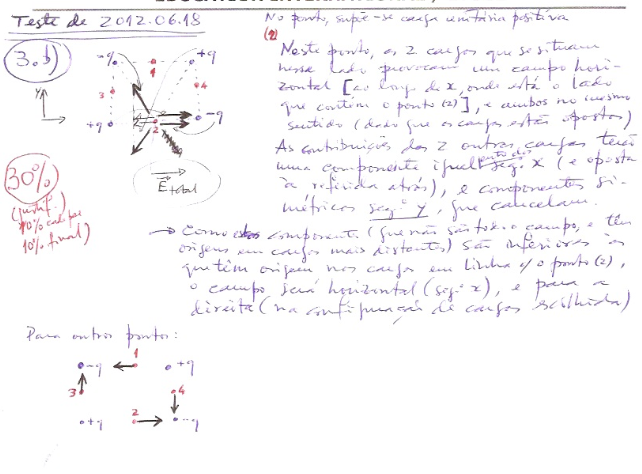 Teste de 2012.06.18
No ponto, supõe-se carga unitária positiva
(2)
3.b)
Neste ponto, as 2 cargas que se situam
nesse lado provocam um campo hori-
zontal [ao longo de x, onde está o lado
que contém o ponto (2)], e ambos no mesmo
sentido (dado que as cargas estão opostas)
As contribuições das 2 outras cargas terão
uma componente igual segº x (e oposta
à referida atrás), e componentes si-
métricas segº y, que cancelam.
-q
1
+q
3
4
Y
x
+q
2
-q
E total
30%
10% final)
→ Como estas componentes (que não são todo o campo, e têm
origem em cargas mais distantes) são inferiores às
que têm origem nas cargas em linha c/ o ponto (2),
o campo será horizontal (segº x), e para a
direita (na configuração de cargas escolhida)
Para outros pontos:
-q
1
+q
3
4
+q
2
-q